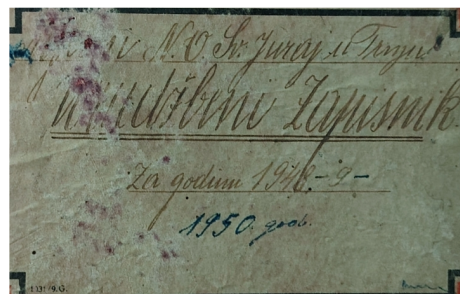 N.O Sv. Juraj u Trnju
Urudžbeni Zapisnik
Za godinu 1948-9-
1950. god.